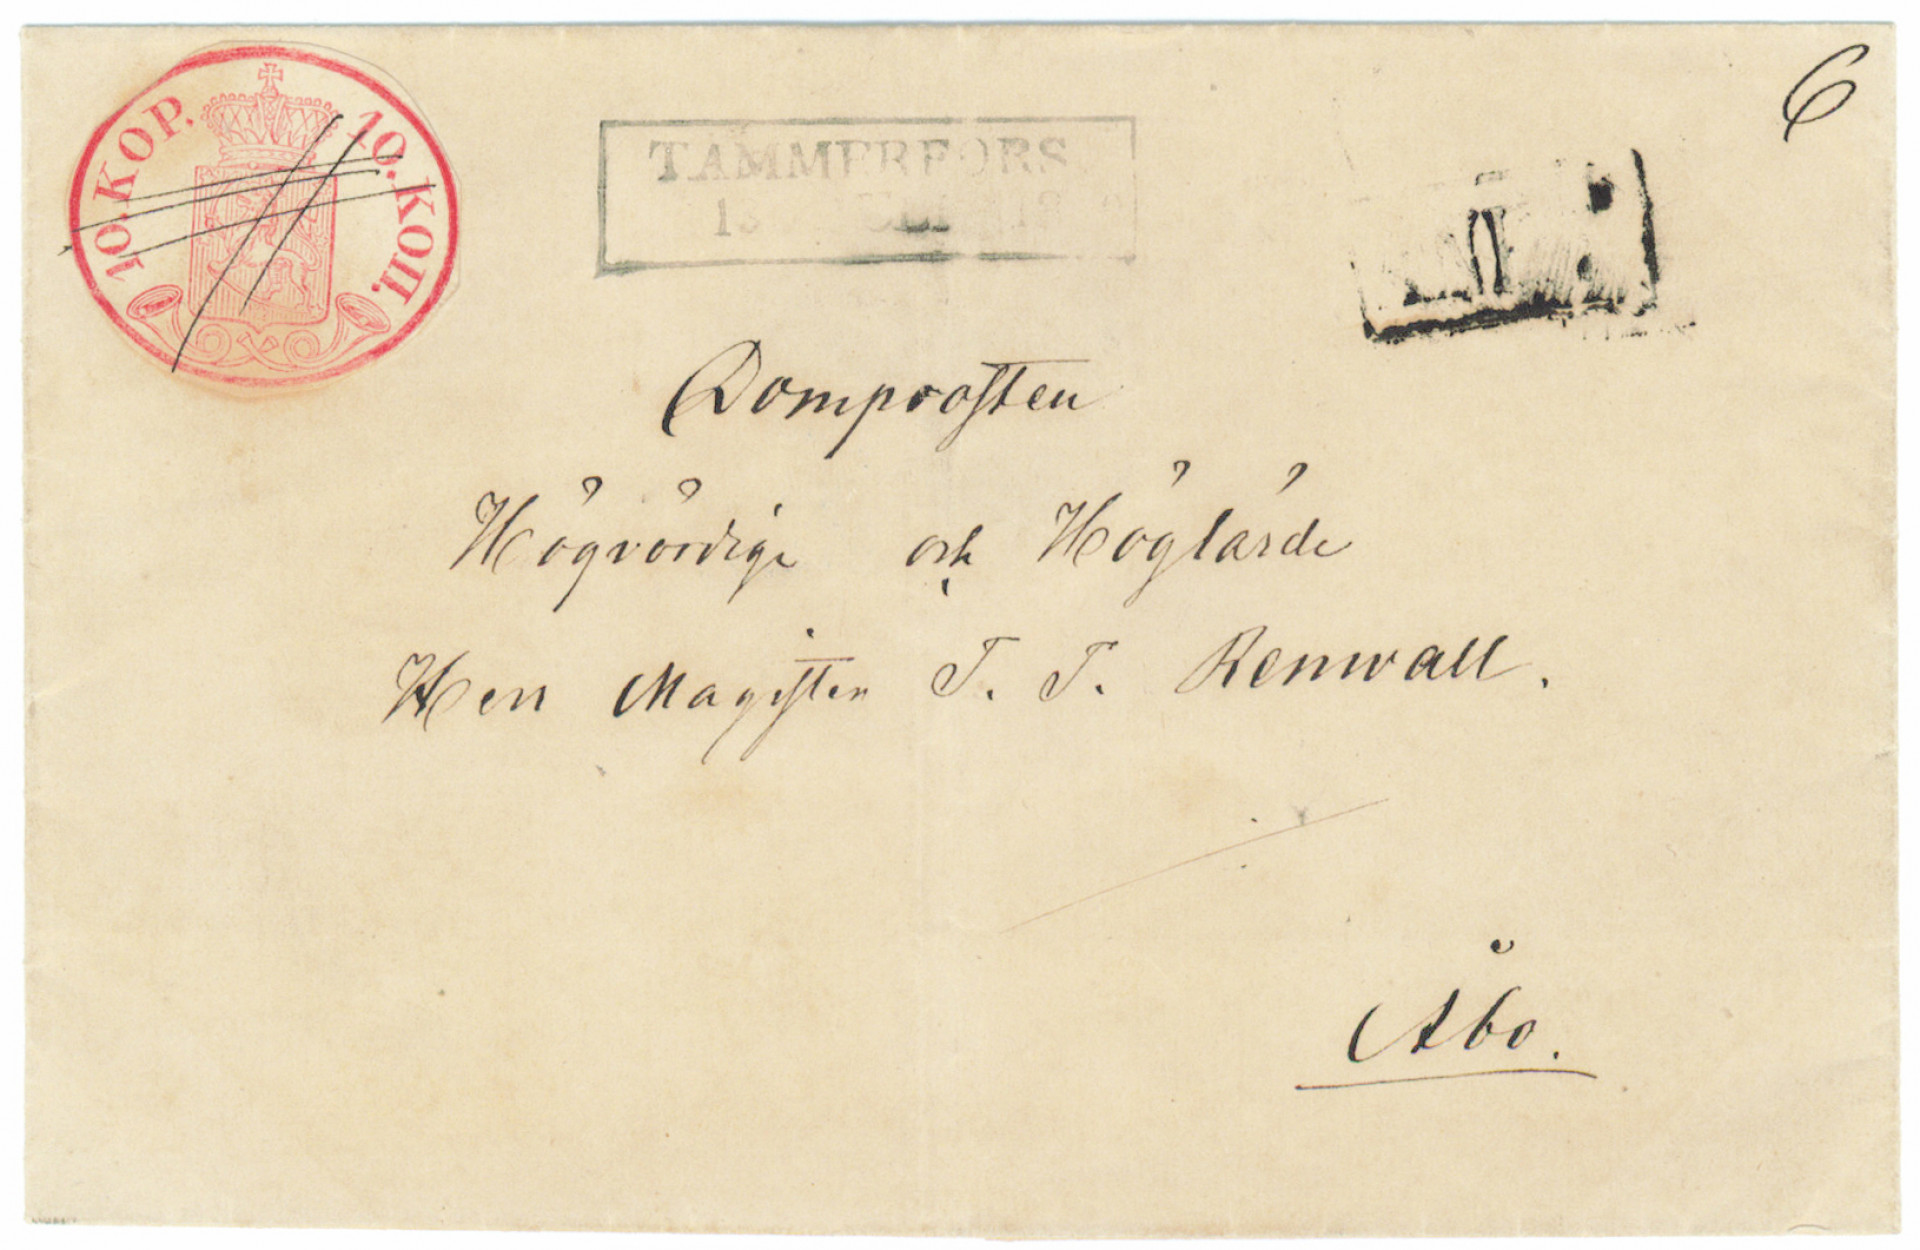 10. KOP. 10. КОП.
6
TAMMERFORS.
Domprosten
Högvördige och Höglärde
Herr Magisten T. T. Renwall.
Åbo.